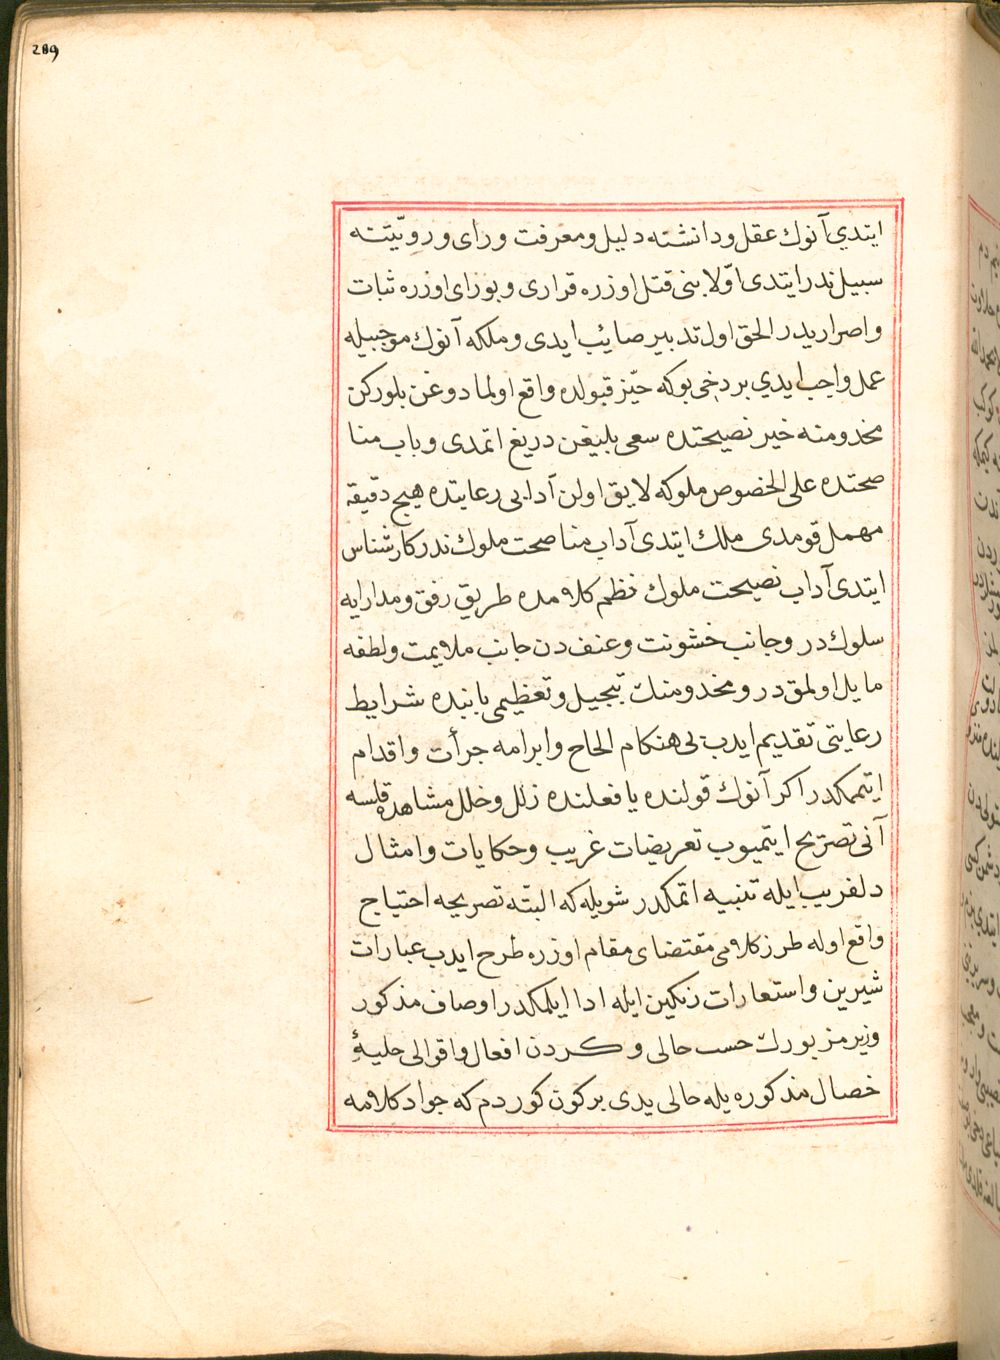 289
ايتدى آنوك عقل و دانشنه دليل و معرفت و راى و رويّتنه
سبيل ندر ايتدى اوّلا بنى قتل اوزره قرارى و بو راى اوزره ثبات
و اصراريدر الحق اول تدبير صائب ايدى و ملكه آنوك موجبيله
عمل واجب ايدى بر دخى بو كه حيّز قبولده واقع اولمادوغن بلوركن
مخدومنه خير نصيحتده سعى بليغن دريغ اتمدى و باب منا
صحتده على الخصوص ملوكه لايق اولن آدابى رعايتده هيچ دقيقه
مهمل قومدى ملك ايتدى آداب مناصحت ملوك ندر كارشناس
ايتدى آداب نصيحت ملوك نظم كلامده طريق رفق و مدارايه
سلوكدر و جانب خشونت و عنفدن جانب ملايمت و لطفه
مايل اولمقدر و مخدومنك تبجيل و تعظيمى بابنده شرايط
رعايتى تقديم ايدب بى هنكام الحاح و ابرامه جرأت و اقدام
ايتممكدر اكر آنوك قولنده يا فعلنده زلل و خلل مشاهده قلسه
آنى تصريح ايتميوب تعريضات غريب و حكايات و امثال
دلفريب ايله تنبيه اتمكدر شويله كه البته تصريحه احتياج
واقع اوله طرز كلامى مقتضاى مقام اوزره طرح ايدب عبارات
شيرين و استعارات رنكين ايله ادا ايلمكدر اوصاف مذكور
وزير مزبورك حسب حالى و كردن افعال و اقوالى حليهٔ
خصال مذكوره يله حالى يدى بر كون كوردم كه جواد كلامه